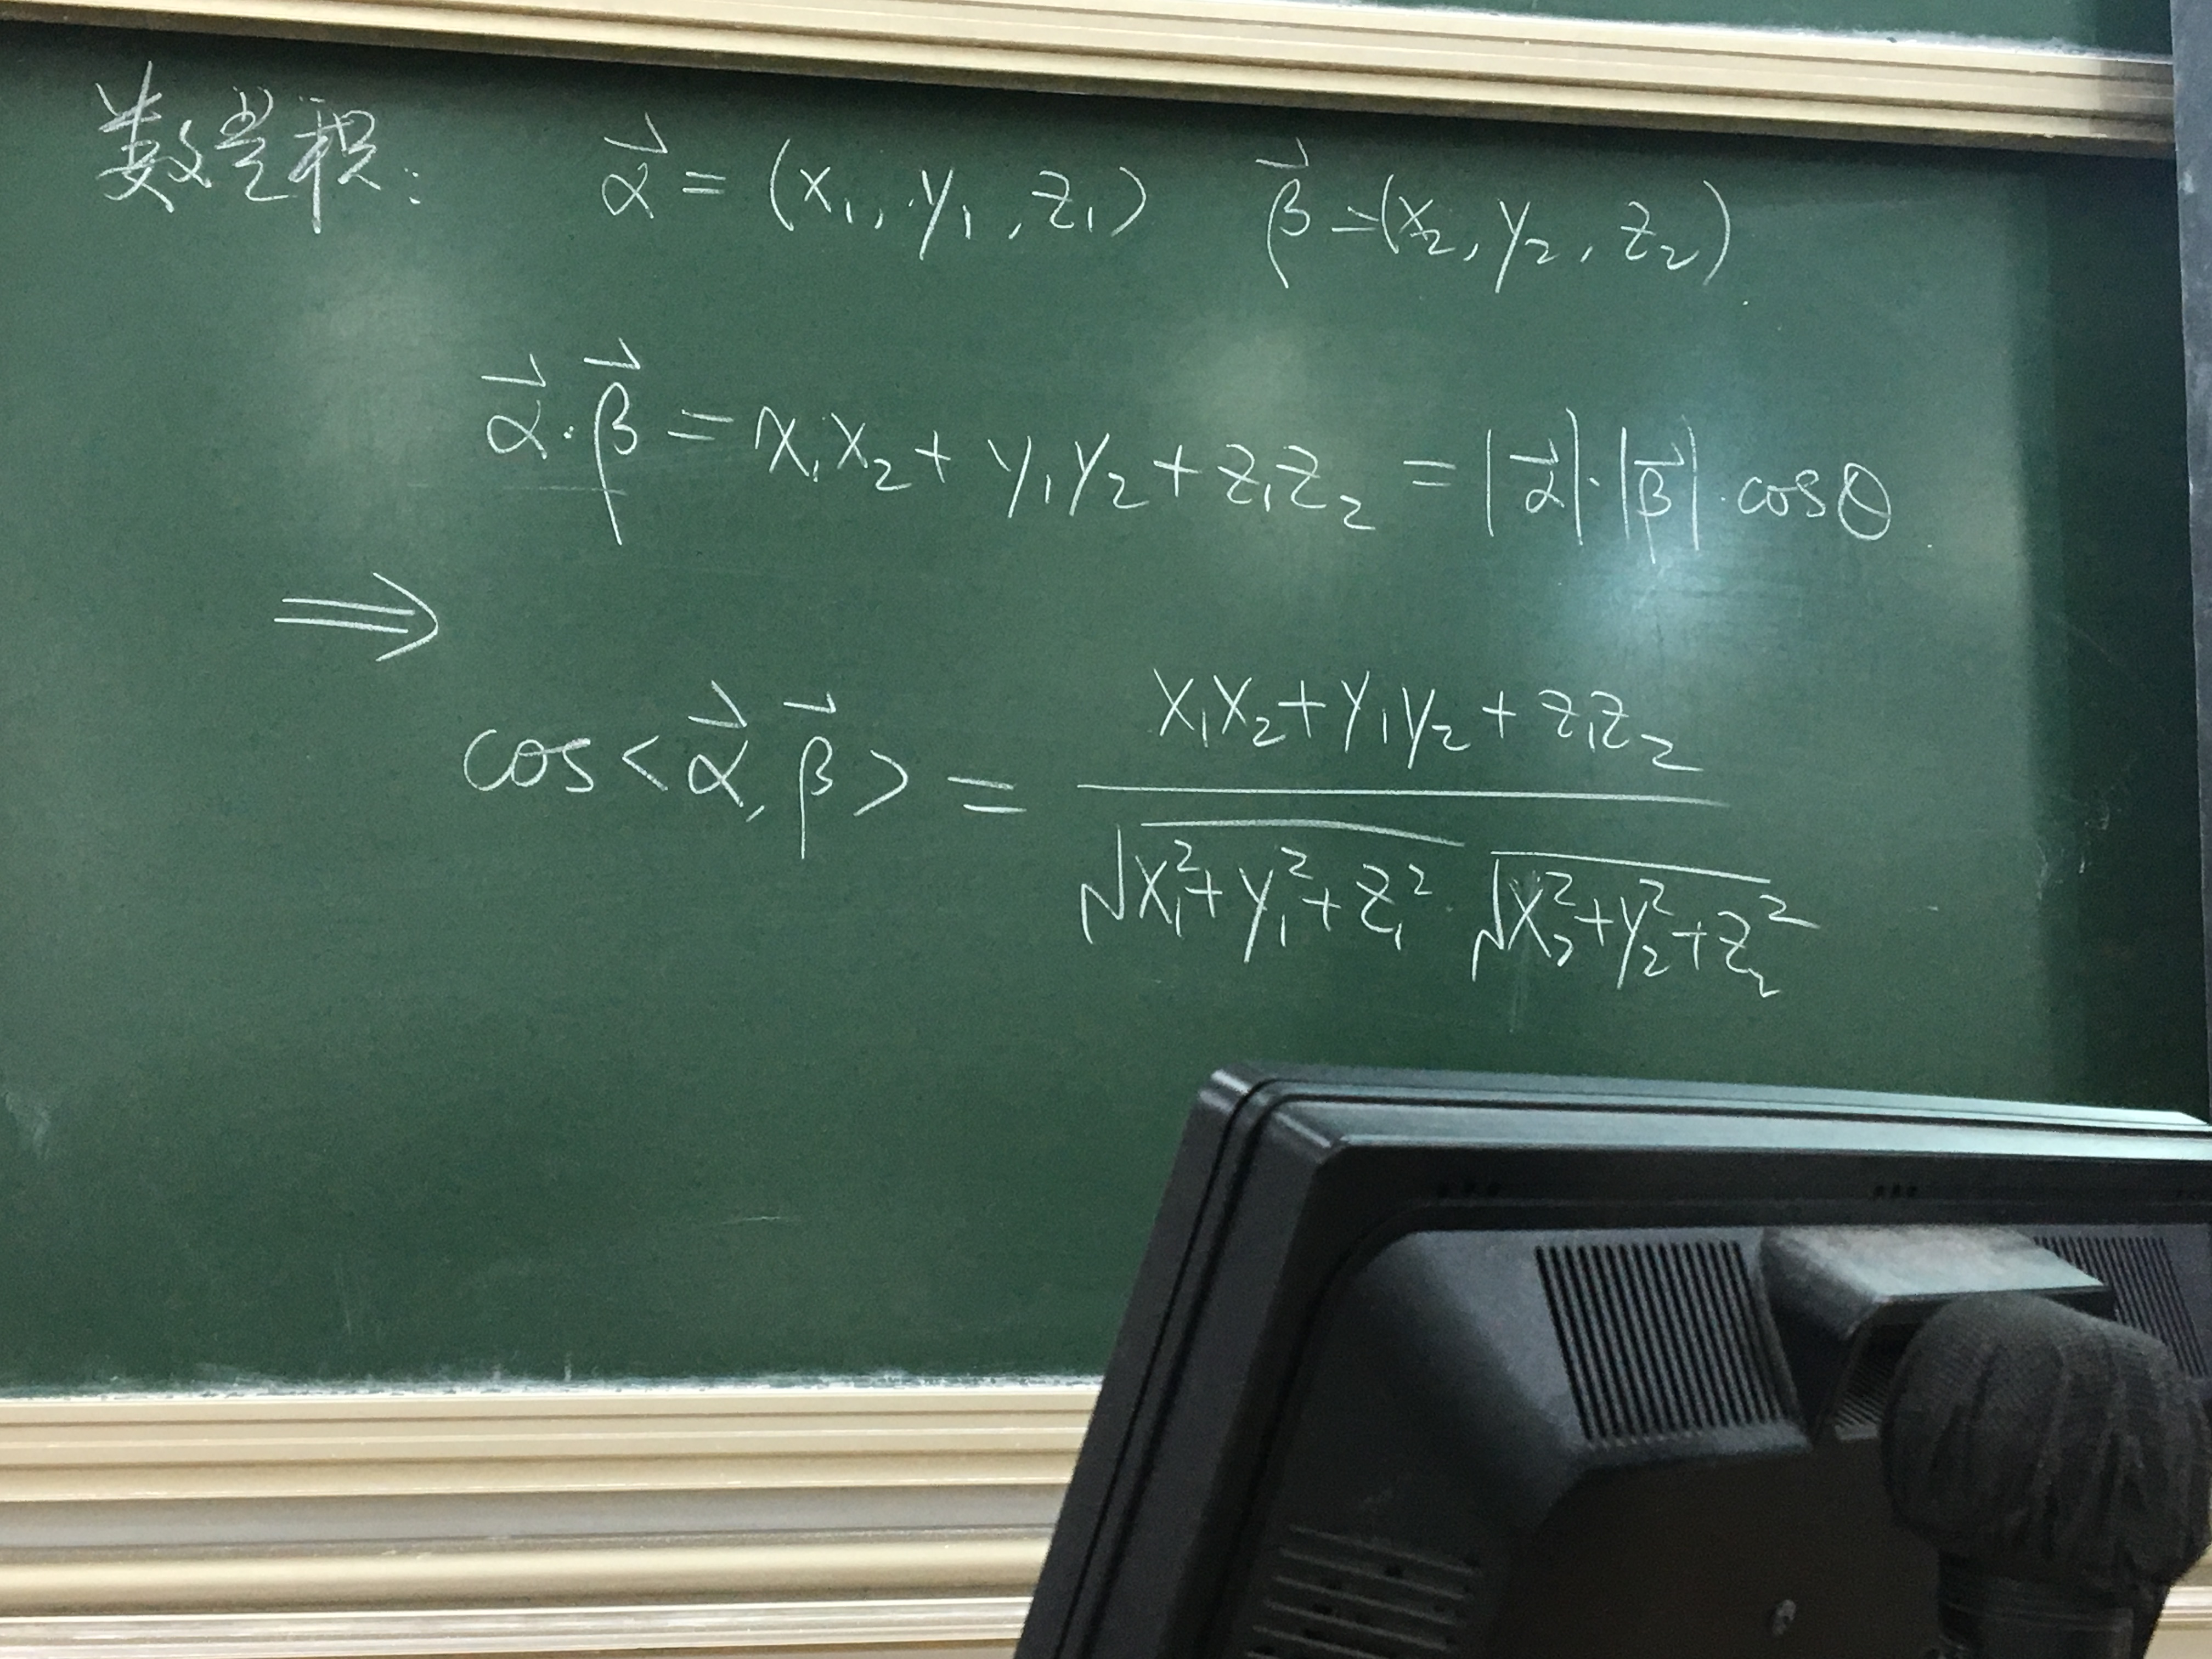 数量积: $\vec{\alpha} = (x_1, y_1, z_1)$ $\vec{\beta} = (x_2, y_2, z_2)$
$\vec{\alpha} \cdot \vec{\beta} = x_1 x_2 + y_1 y_2 + z_1 z_2 = |\vec{\alpha}| \cdot |\vec{\beta}| \cdot \cos\theta$
$\Longrightarrow$
$\cos<\vec{\alpha}, \vec{\beta}> = \frac{x_1 x_2 + y_1 y_2 + z_1 z_2}{\sqrt{x_1^2 + y_1^2 + z_1^2} \sqrt{x_2^2 + y_2^2 + z_2^2}}$